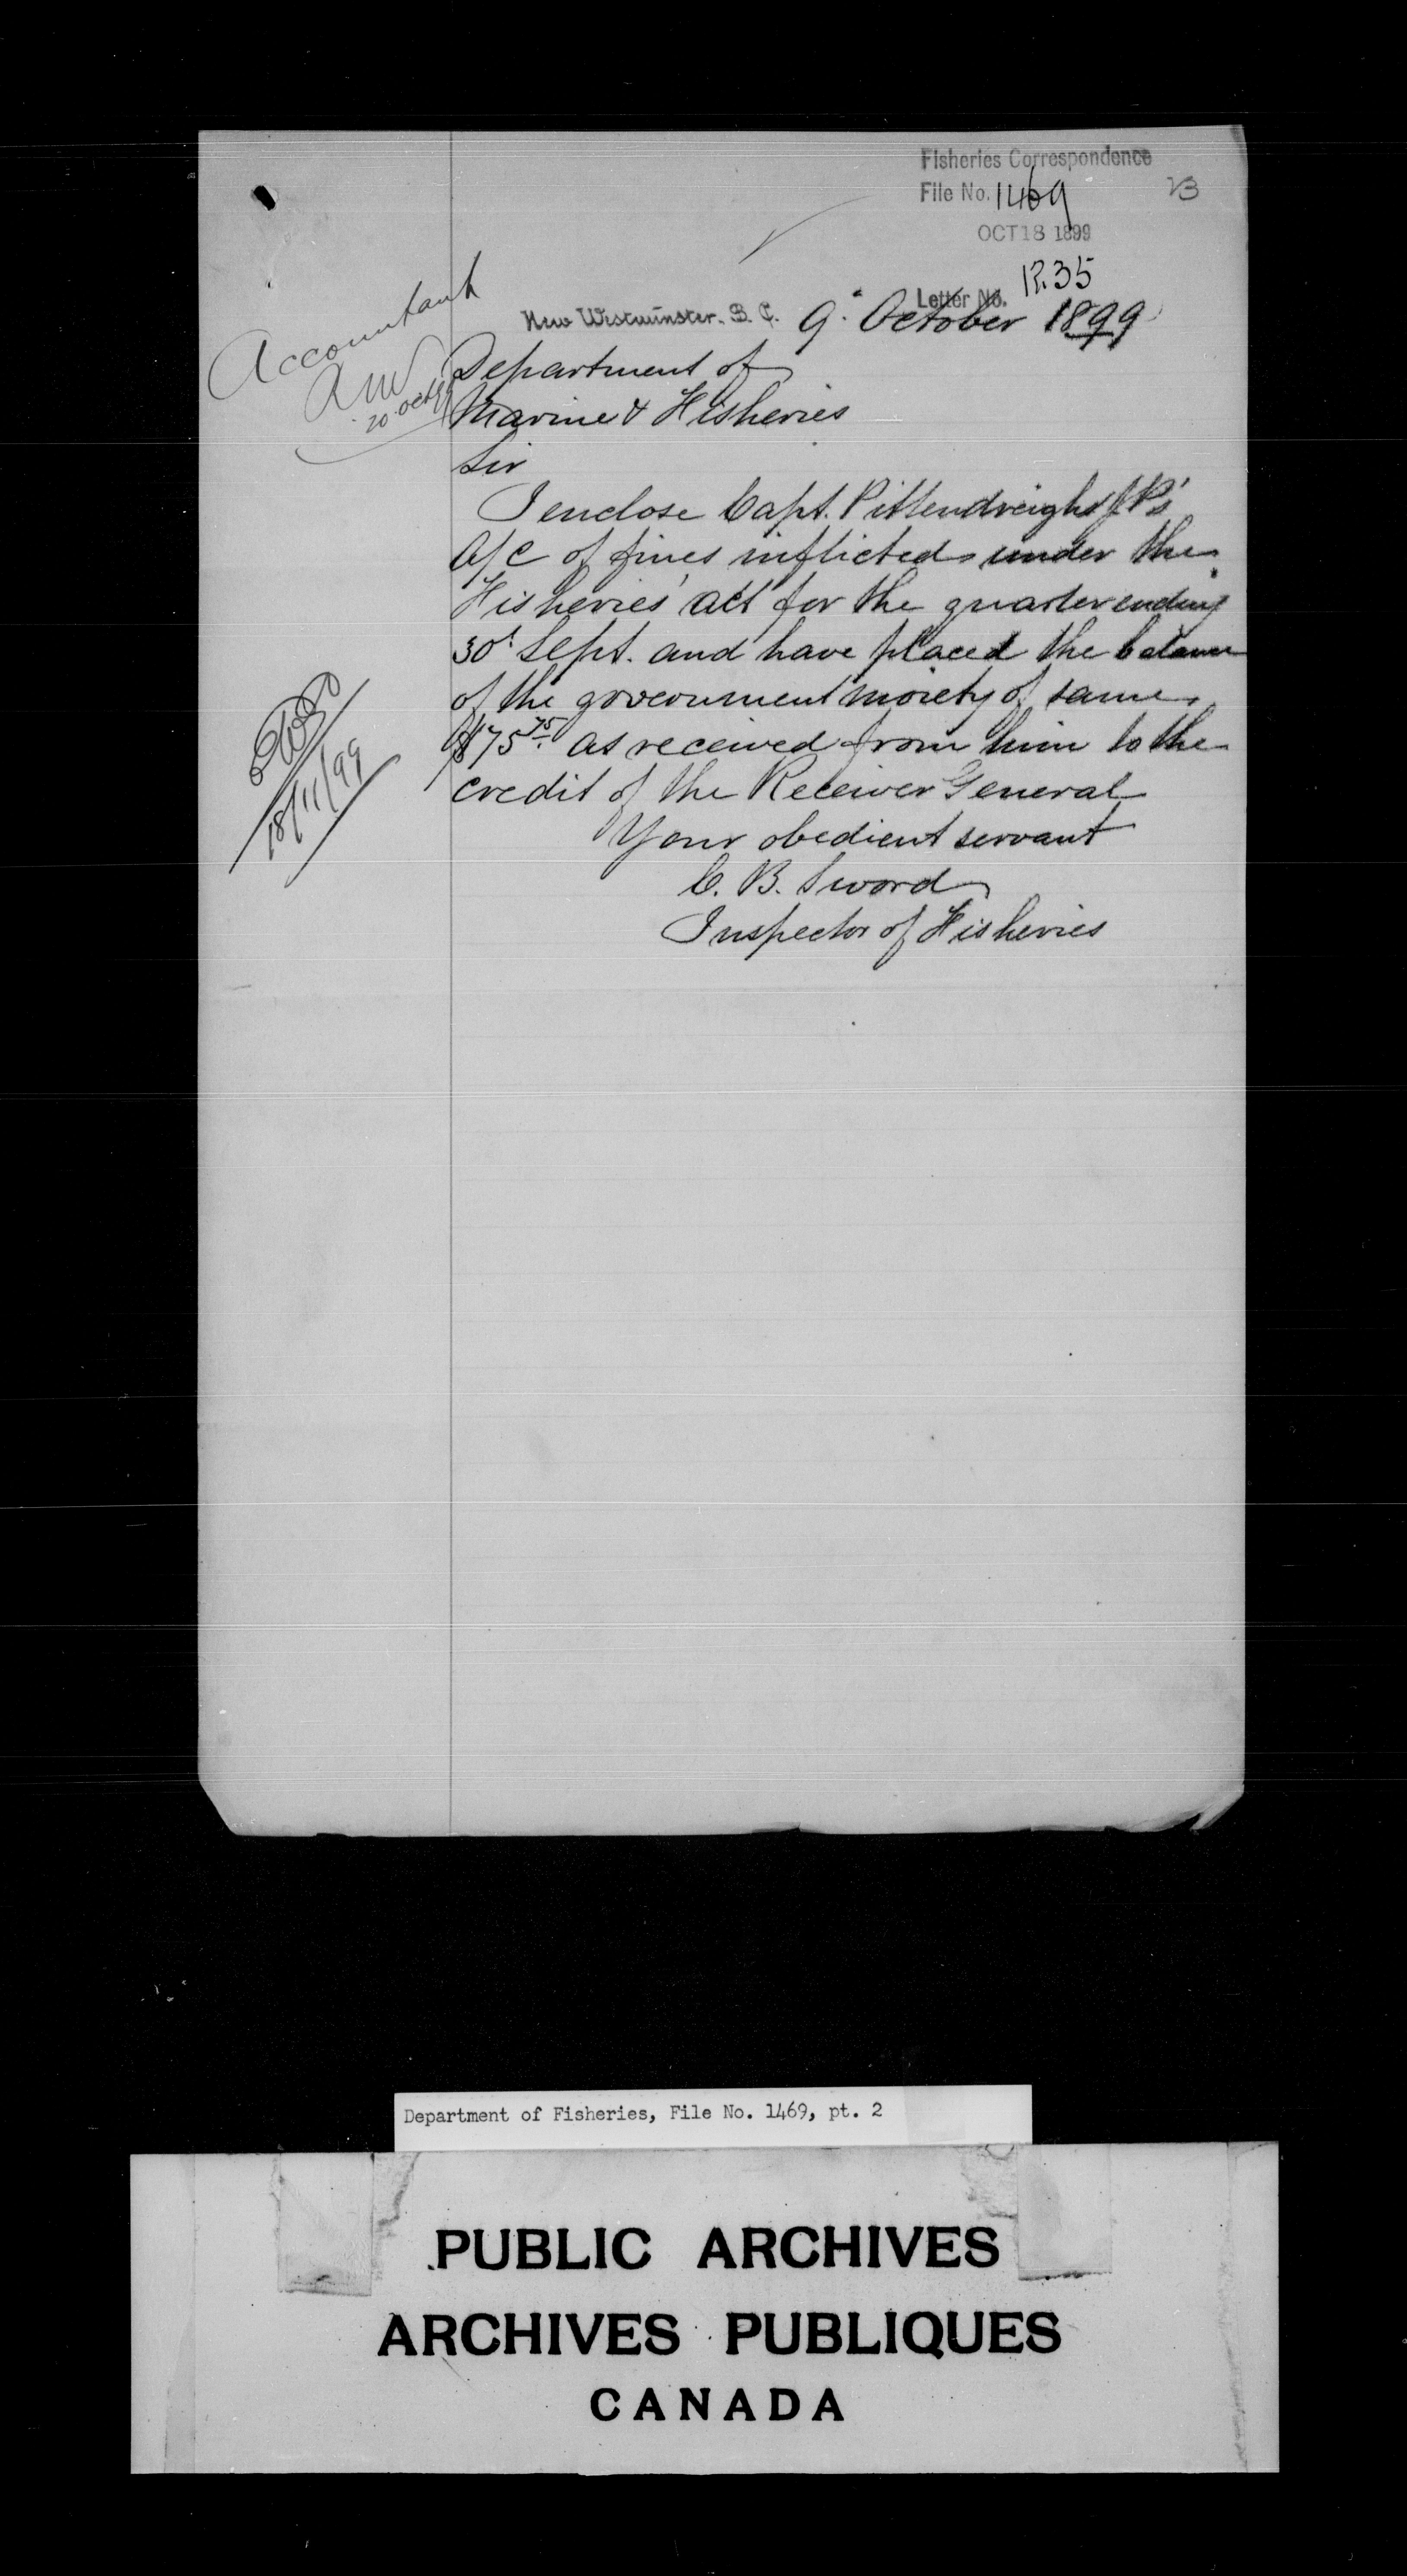 Fisheries Correspondence
File No. 1469
23
OCT 18 1899
Letter No. 1235
New Westminster. B. C. 9. October 1899
Accountant
20 Oct 99
Department of
Marine & Fisheries
Sir
I enclose Capt. Pittendreighs J P's
a/c of fines inflicted under the
Fisheries act for the quarter ending
30th Sept. and have placed the balance
of the government moiety of same
$75 75 as received from him to the
credit of the Receiver General
Your obedient servant
C. B. Sword
Inspector of Fisheries
18/11/99
Department of Fisheries, File No. 1469, pt. 2
PUBLIC ARCHIVES
ARCHIVES PUBLIQUES
CANADA